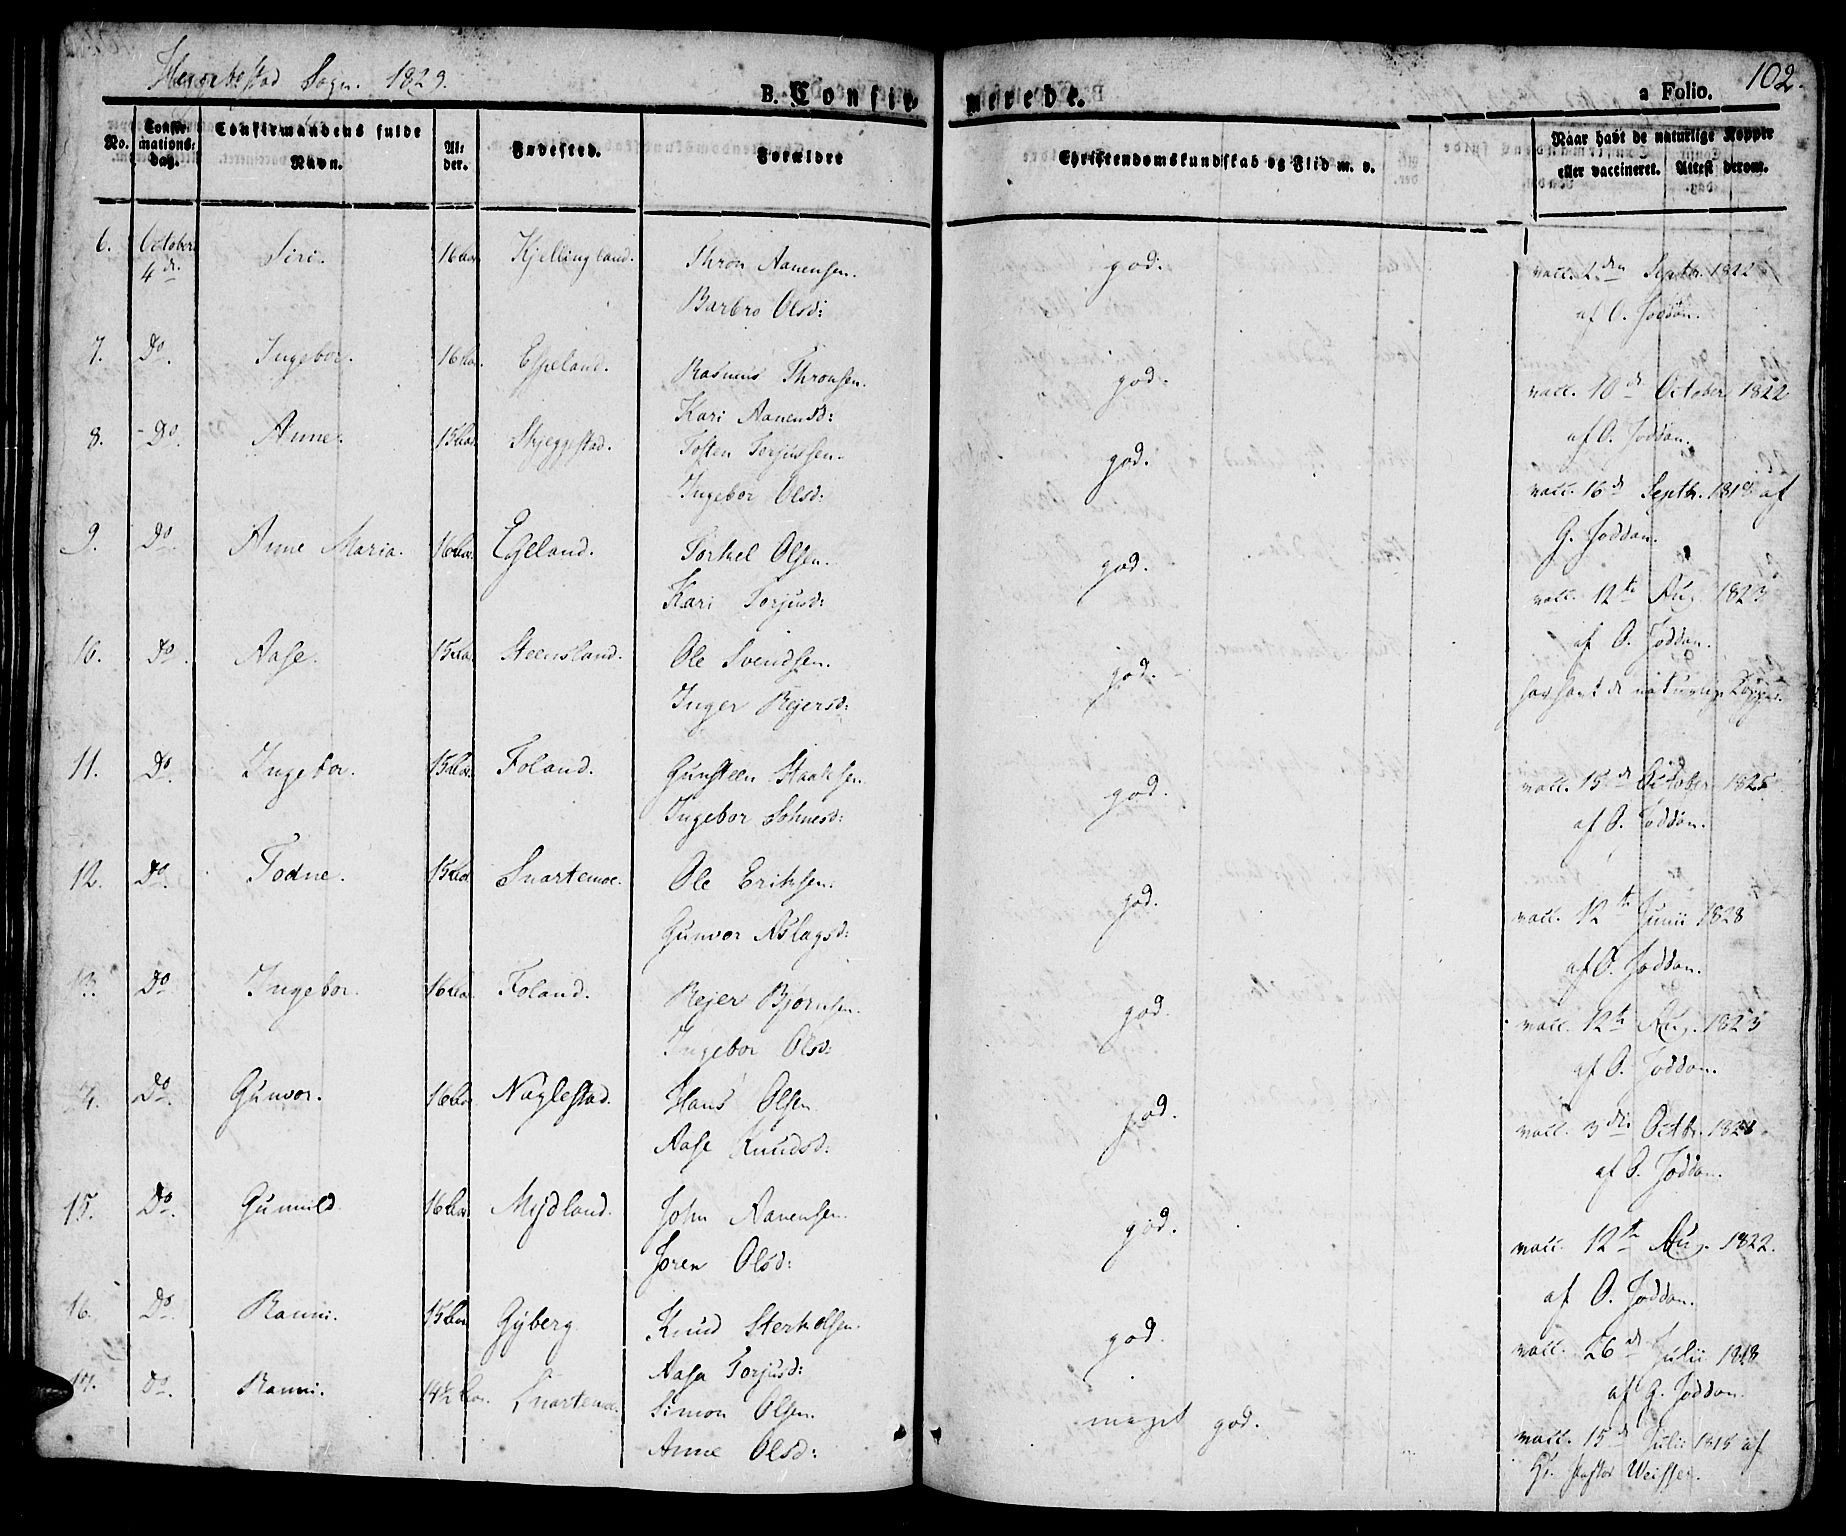 Hægebostad Sogn. 1829.
B. Confirmerede.
a Folio. 102.
No. Confirmations-dag. Confirmandens fulde Navn. Alder. Fødested. Forældre Christendomskundskab og Flid m. v. Naar havt de naturlige Kopper eller vaccineret. Attest derom.
6. October 4de. Siri. 16 Aar. Kjellingland. Thron Aanensen. god. vacc. 2den Septbr. 1822
Barbro Olsd: af O. Joddan.
7. Do. Ingebor. 16 Aar. Espeland. Rasmus Thronsen. god. vacc. 10de October 1822
Kari Aanensd: af O. Joddan.
8. Do. Anne. 15 Aar. Skjeggestad. Tosten Torjussen. god. vacc. 16de Septbr. 1818 af
Ingebor Olsd: G. Joddan.
9. Do. Anne Maria. 16 Aar. Egeland. Torkel Olsen. god. vacc. 12te Aug. 1823
Kari Torjusd: af O. Joddan.
10. Do. Aase. 15 Aar. Steensland. Ole Svendsen. god. har havt de naturlige Kopper.
Inger Rejersd:
11. Do. Ingebor. 15 Aar. Foland. Gunsteen Staalesen. god. vacc. 15de October 1825
Ingebor Sohnesd: af O. Joddan.
12. Do. Todne. 15 Aar. Snartemoe. Ole Eriksen. god. vacc. 12te Junii 1828
Gunvor Aslagsd: af O. Joddan.
13. Do. Ingebor. 16 Aar. Foland. Rejer Bjørnsen. god. vacc. 12te Aug. 1823
Ingebor Olsd: af O. Joddan.
14. Do. Gunvor. 16 Aar. Naglestad. Hans Olsen god. vacc. 3die Octbr. 1828
Aase Knudsd: af O. Joddan.
15. Do. Gunnild. 16 Aar. Mydland. John Aanensen. god. vacc. 12te Aug. 1822.
Joren Olsd: af O. Joddan.
16. Do. Ranni. 15 Aar Gyberg Knud Sterkelsen. god. vacc. 26de Julii 1818
Aasa Torjusd: af G. Joddan.
17. Do. Ranni. 14½ Aar. Snartemoe. Simon Olsen. meget god. vacc. 15de Julii 1815 af
Anne Olsd: Hr. Pastor Weisser.